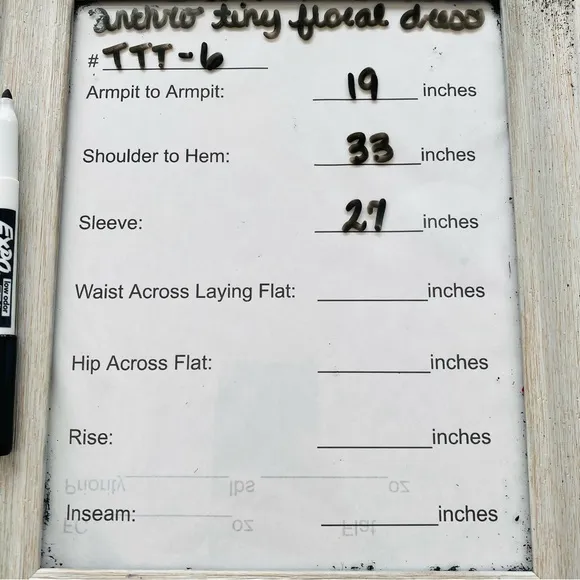 anthro tiny floral dress
# TTT-6
Armpit to Armpit: 19 inches
Shoulder to Hem: 33 inches
Sleeve: 27 inches
Waist Across Laying Flat: ______ inches
Hip Across Flat: ______ inches
Rise: ______ inches
Priority ______ lbs ______ oz
Inseam: ______ inches
FC ______ oz Flat
EXPO
low odor